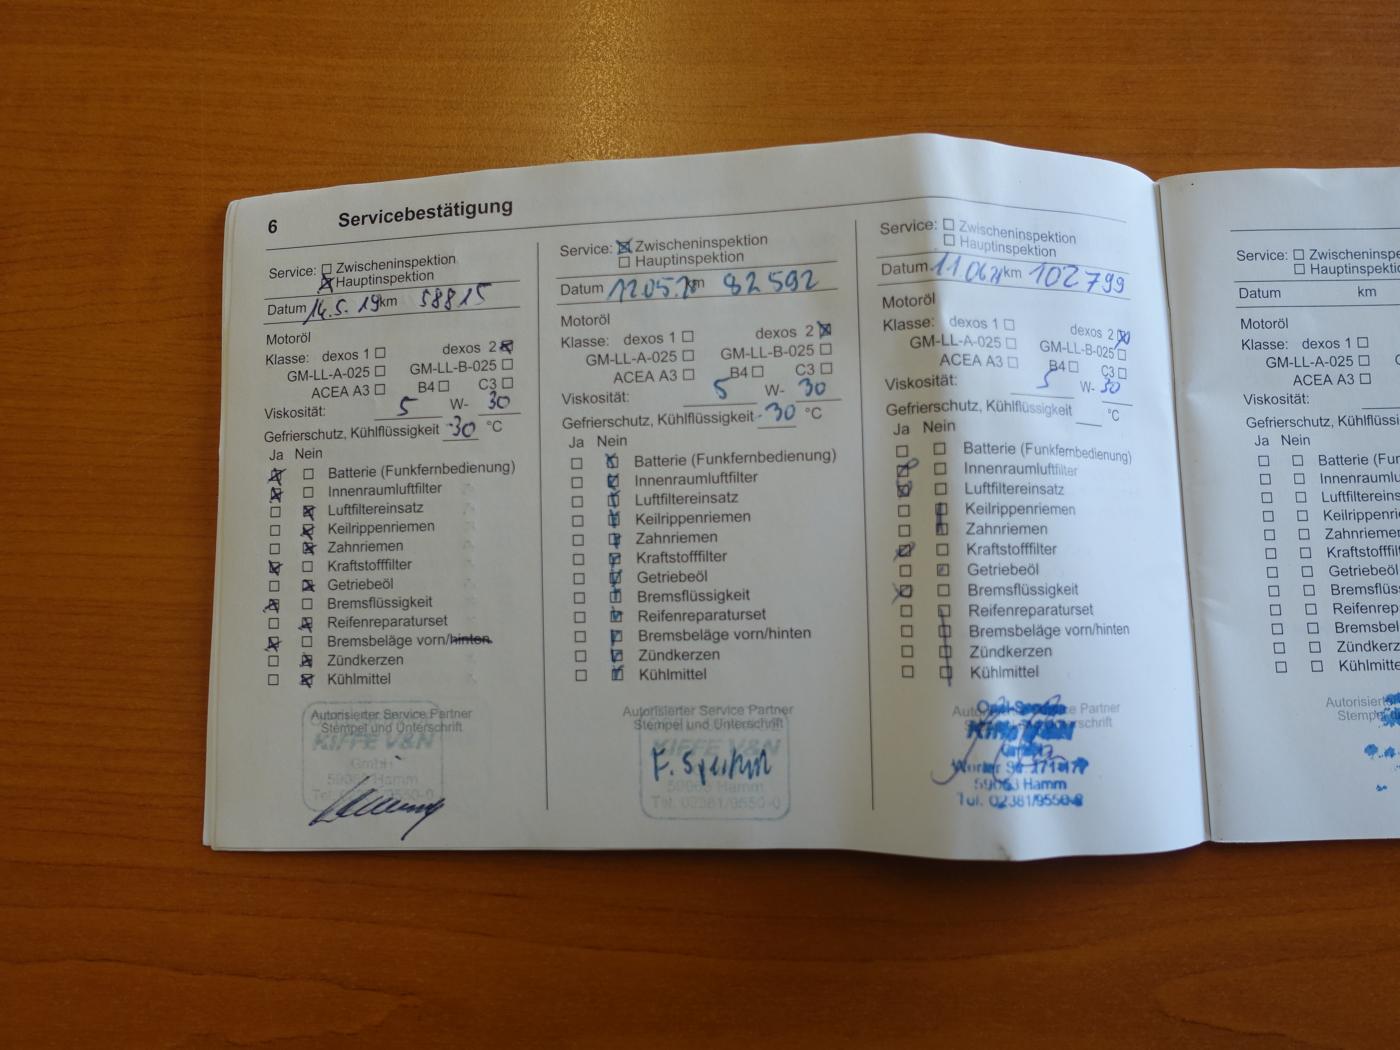 6 Servicebestätigung
Service: Zwischeninspektion
Hauptinspektion
Datum 14.5.19 km 58815
Motoröl
Klasse: dexos 1 dexos 2
GM-LL-A-025 GM-LL-B-025
ACEA A3 B4 C3
Viskosität: 5 W- 30
Gefrierschutz, Kühlflüssigkeit -30 °C
Ja Nein
Batterie (Funkfernbedienung)
Innenraumluftfilter
Luftfiltereinsatz
Keilrippenriemen
Zahnriemen
Kraftstofffilter
Getriebeöl
Bremsflüssigkeit
Reifenreparaturset
Bremsbeläge vorn/hinten
Zündkerzen
Kühlmittel
Autorisierter Service Partner
Stempel und Unterschrift
KIFFE V&N
GmbH
59063 Hamm
Service: Zwischeninspektion
Hauptinspektion
Datum 12.05. km 82592
Motoröl
Klasse: dexos 1 dexos 2
GM-LL-A-025 GM-LL-B-025
ACEA A3 B4 C3
Viskosität: 5 W- 30
Gefrierschutz, Kühlflüssigkeit -30 °C
Ja Nein
Batterie (Funkfernbedienung)
Innenraumluftfilter
Luftfiltereinsatz
Keilrippenriemen
Zahnriemen
Kraftstofffilter
Getriebeöl
Bremsflüssigkeit
Reifenreparaturset
Bremsbeläge vorn/hinten
Zündkerzen
Kühlmittel
Autorisierter Service Partner
Stempel und Unterschrift
KIFFE V&N
59063 Hamm
Tel. 02381/9550-0
Service: Zwischeninspektion
Hauptinspektion
Datum 11.06.21 km 102799
Motoröl
Klasse: dexos 1 dexos 2
GM-LL-A-025 GM-LL-B-025
ACEA A3 B4 C3
Viskosität: 5 W- 30
Gefrierschutz, Kühlflüssigkeit °C
Ja Nein
Batterie (Funkfernbedienung)
Innenraumluftfilter
Luftfiltereinsatz
Keilrippenriemen
Zahnriemen
Kraftstofffilter
Getriebeöl
Bremsflüssigkeit
Reifenreparaturset
Bremsbeläge vorn/hinten
Zündkerzen
Kühlmittel
Partner
59063 Hamm
Tel. 02381/9550-0
Service: Zwischeninspe
Hauptinspektion
Datum km
Motoröl
Klasse: dexos 1
GM-LL-A-025
ACEA A3
Viskosität:
Gefrierschutz, Kühlflüssi
Ja Nein
Batterie (Fun
Innenrauml
Luftfiltereins
Keilrippenrie
Zahnriemen
Kraftstofffilt
Getriebeöl
Bremsflüss
Reifenrep
Bremsbel
Zündkerz
Kühlmitte
Autorisiert
Stemp